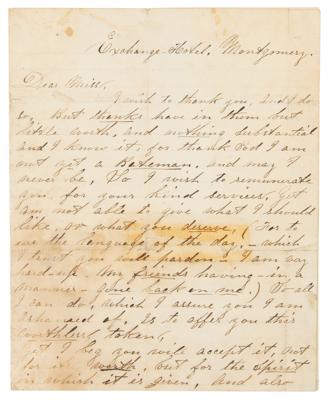 Exchange-Hotel, Montgomery.
Dear Miss,
I wish to thank you, and I do
so, But thanks have in them but
little worth, and nothing substantial
and I know it, for thank God I am
not yet a Bateman, and may I
never be, So I wish to remunerate
you, for your kind services, yet
I am not able to give what I should
like, or what you deserve, (For to
use the language of the day, - which
I trust you will pardon - I am very
hard-up. My friends having - in a
manner - gone back on me.) So all
I can do, which I assure you I am
ashamed of, is to offer you this
worthless token,
yet I beg you will accept it, not
for its worth, but for the spirit
in which it is given, and also